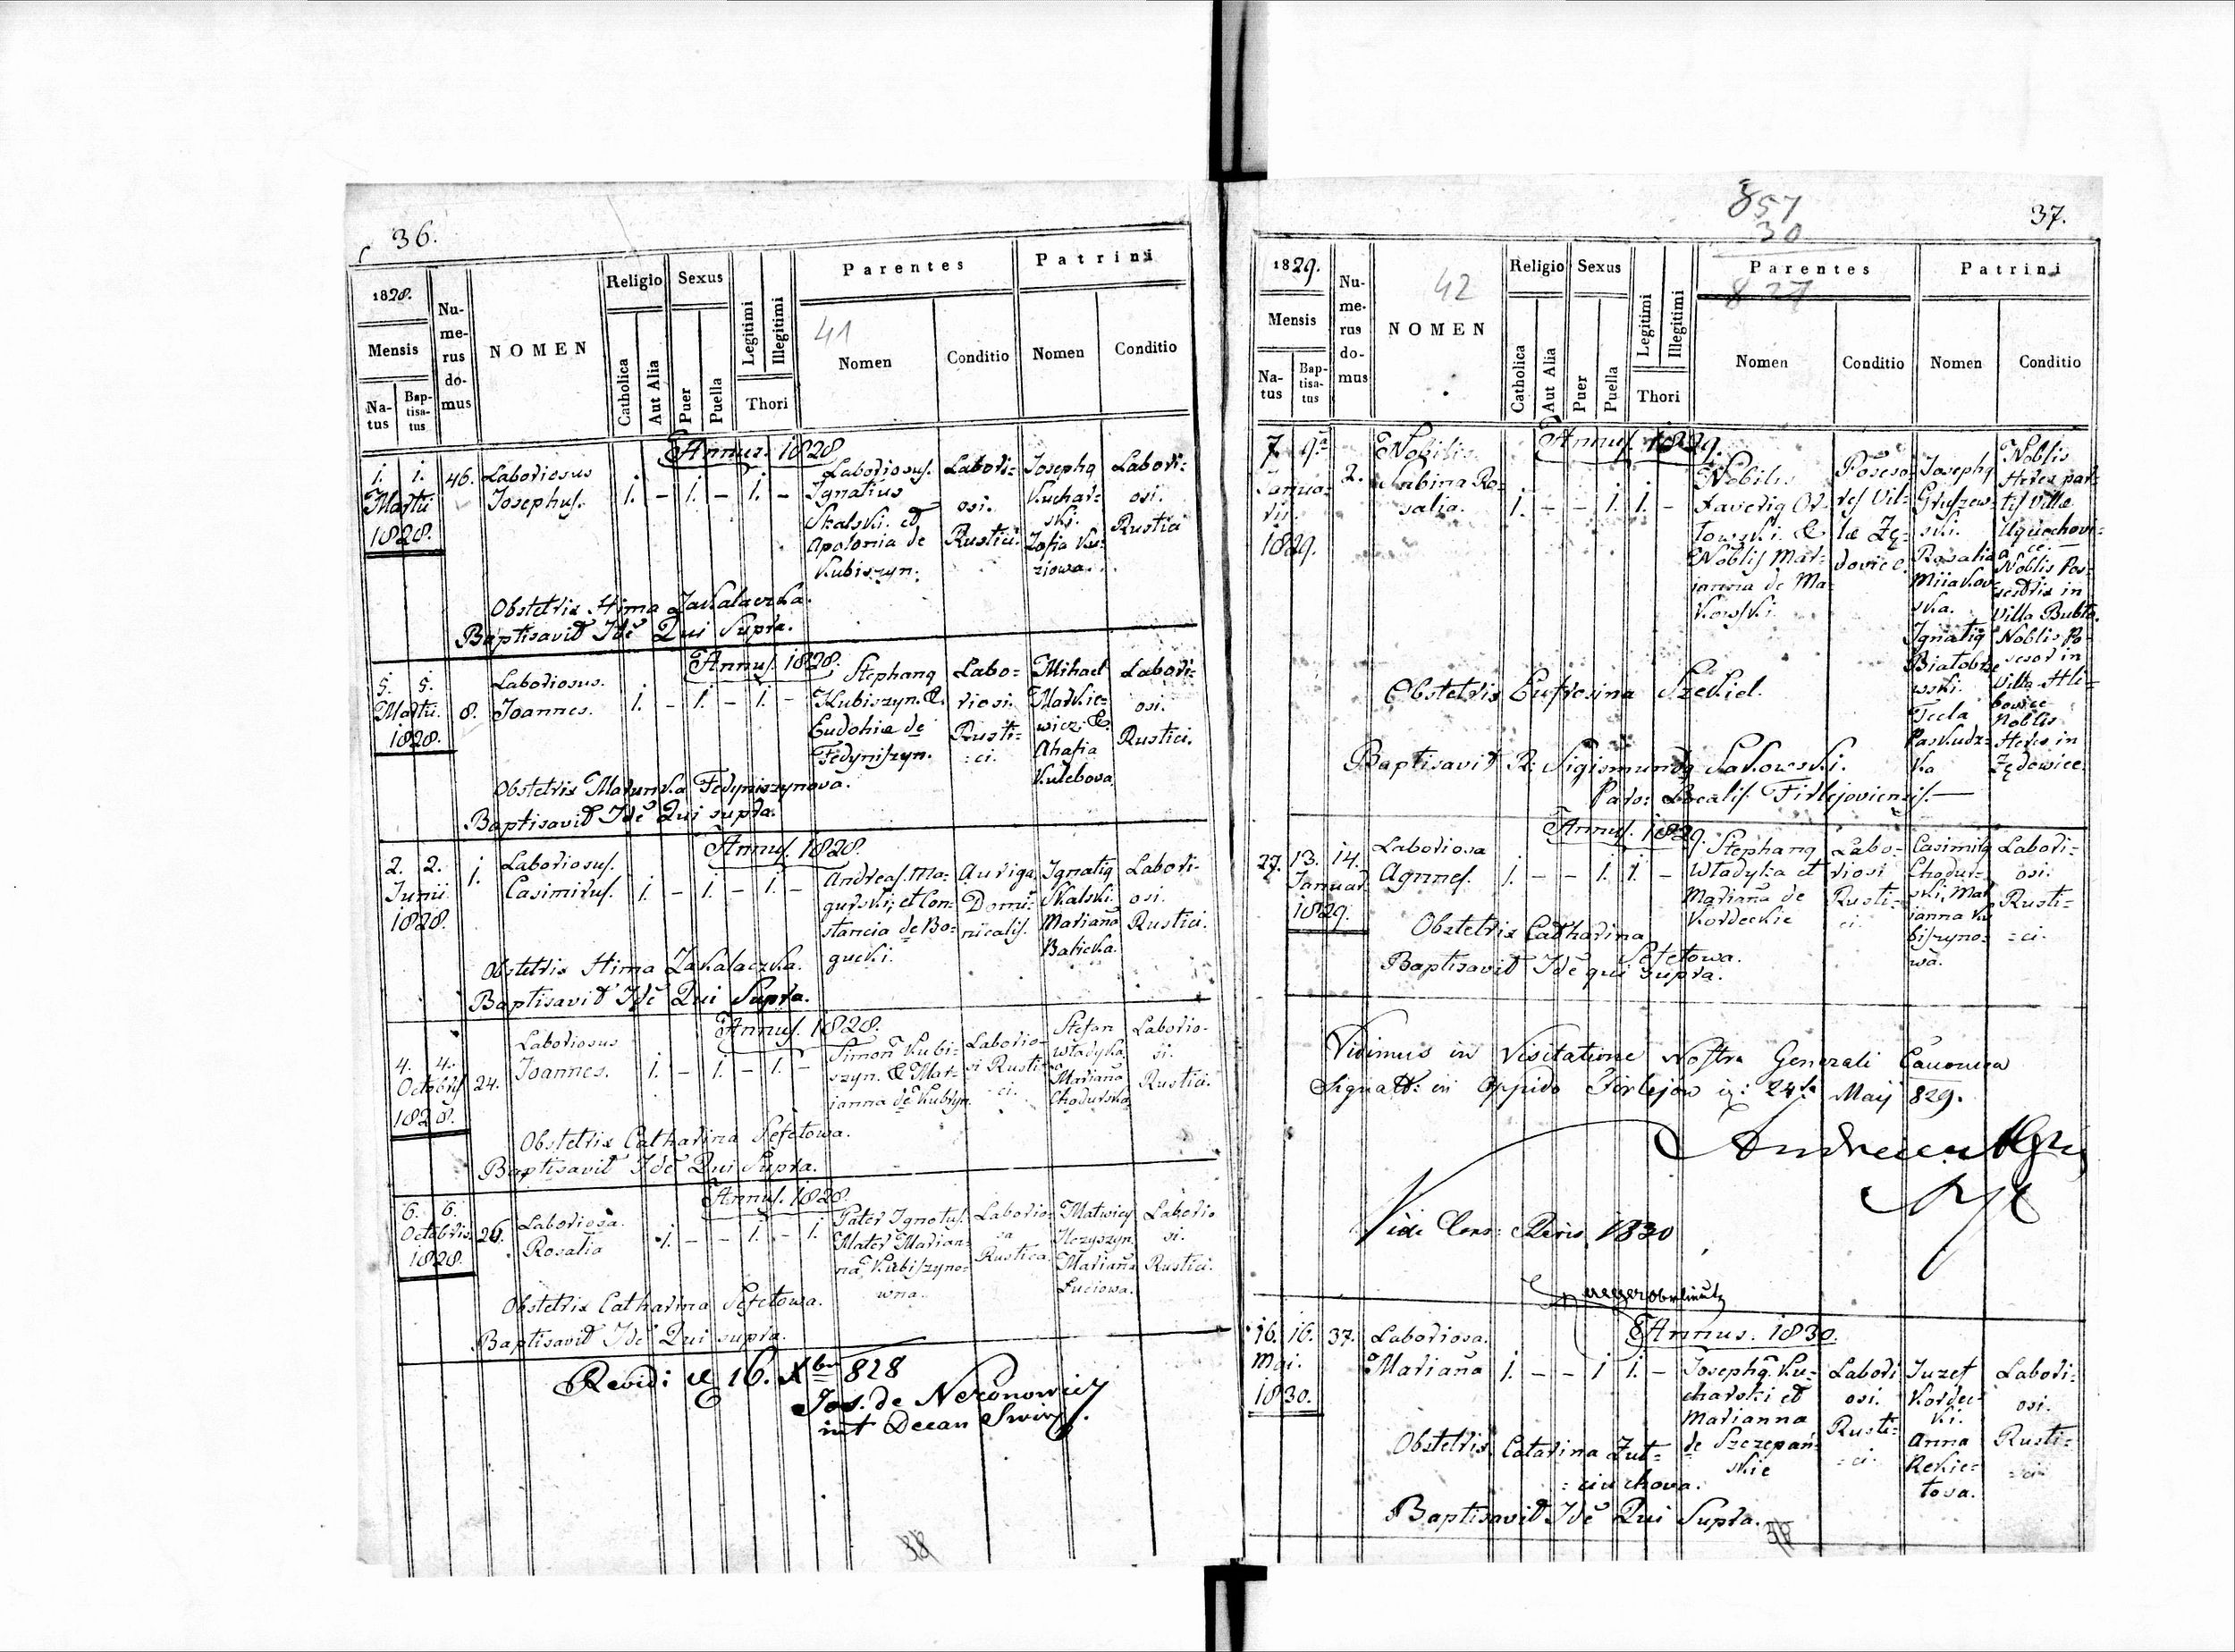 36.
1828.
Mensis
Na-
tus
Bap-
tisa-
tus
Nu-
me-
rus
do-
mus
NOMEN
Religio
Catholica
Aut Alia
Sexus
Puer
Puella
Legitimi
Illegitimi
Thori
Parentes
41
Nomen
Conditio
Patrini
Nomen
Conditio
Annus. 1828
1. 1.
Martii
1828.
46.
Laboriosus
Josephus.
1. – 1. – 1. –
Laboriosus.
Ignatius
Skalski. et
Apolonia de
Kubiszyn.
Labori-
osi.
Rustici.
Josephq
Kuchar-
ski.
Zofia Ku-
ziowa.
Labori-
osi.
Rustici
Obstetrix Hima Zakalaczka.
Baptisavit Idê Qui Supra.
Annus. 1828.
5. 5.
Martii.
1828.
8.
Laboriosus.
Joannes.
1. – 1. – 1. –
Stephanq
Kubiszyn. &
Eudohia de
Fedyniszyn.
Labo-
riosi.
Rusti-
:ci.
Mihael
Markie-
wicz &
Ahafia
Kulebova
Labori-
osi.
Rustici.
Obstetrix Marunka Fedyniszynova.
Baptisavit Idê Qui supra.
Annus. 1828.
2. 2.
Junii
1828.
1.
Laboriosus.
Casimirus.
1. – 1. – 1. –
Andreas. Ma-
gurski; et Con-
stancia de Bo-
gucki.
Auriga
Domi-
nicalis.
Ignatiq
Skalski.
Mariana
Balicka.
Labori-
osi.
Rustici.
Obstetrix Hima Zakalaczka.
Baptisavit Idê Qui Supra.
Annus. 1828.
4. 4.
Octobris
1828.
24.
Laboriosus
Joannes.
1. – 1. – 1. –
Simon Kubi-
szyn. & Mar-
janna de Kubryn
Laborio-
si Rusti-
ci.
Stefan
Wladyka
Mariana
Chodurska
Laborio-
si.
Rustici.
Obstetrix Catharina Sefetowa.
Baptisavit Idê Qui Supra.
Annus. 1828.
6. 6.
Octobris.
1828.
26.
Laboriosa.
Rosalia
1. – – 1. – 1.
Pater Ignotus.
Mater Marian-
na Kubiszyno-
wna.
Laborio-
sa
Rustica.
Matwiey
Hczyszyn
Mariana
Luciowa.
Laborio
si.
Rustici.
Obstetrix Catharina Sefetowa.
Baptisavit Idê Qui supra.
Revidi 16. Xbr 828
Jos. de Neronowicz
int Decan
37.
857
30
827
1829.
Mensis
Na-
tus
Bap-
tisa-
tus
Nu-
me-
rus
do-
mus
42
NOMEN
Religio
Catholica
Aut Alia
Sexus
Puer
Puella
Legitimi
Illegitimi
Thori
Parentes
Nomen
Conditio
Patrini
Nomen
Conditio
Annus. 1829.
7. 9a
Janua-
rii.
1829.
2.
Nobilis
Sabina Ro-
salia.
1. – – 1. 1. –
Nobilis
Xaveriq Or-
lowski. &
Noblis Mar-
janna de Ma-
kowski.
Poseso-
res Vil-
læ Zę-
dovice.
Josephq
Gruszew-
ski.
Rosalia
Miiakow
ska.
Ignatiq
Bialobrze
wski.
Tecla
Paskudz-
ka
Noblis
Heres par-
tis Villæ
ce.
Noblis Pos-
sestrix in
Villa Bubło.
Noblis Po-
sesor in
Villa Hli-
bowice
Noblis
Heres in
Zędowice.
Obstetrix Eufrosina Szekiel.
Baptisavit R: Sigismundq Sakowski.
Paro: Localis. Firlejoviensis.
Annus. 1829.
13. 14.
Januar
1829.
27.
Laboriosa
Agnnes.
1. – – 1. 1. –
Stephanq
Wladyka et
Mariana de
Kordeckie
Labo-
riosi
Rusti-
ci.
Casimirq
Chodur-
ski, Mar
janna Ku
biszyno-
wa.
Labori-
osi.
Rusti-
=ci.
Obstetrix Catharina
Sefetowa.
Baptisavit Idê qui supra.
Vidimus in Visitatione Nostra Generali Canonica
Signatt: in Oppido Firlejow 24ta Maij 829.
Vidi 1830
Annus. 1830.
16. 16.
Mai.
1830.
37.
Laboriosa.
Mariana
1. – – 1 1. –
Josephq Ku-
charski et
Marianna
de Szczepań-
skie
Labori
osi.
Rusti-
ci.
Juzef
Kordec-
ki.
Anna
Rekie-
towa.
Labori-
osi.
Rusti-
ci
Obstetrix Catarina Zut-
:ciuchova.
Baptisavit Idê Qui Supra.